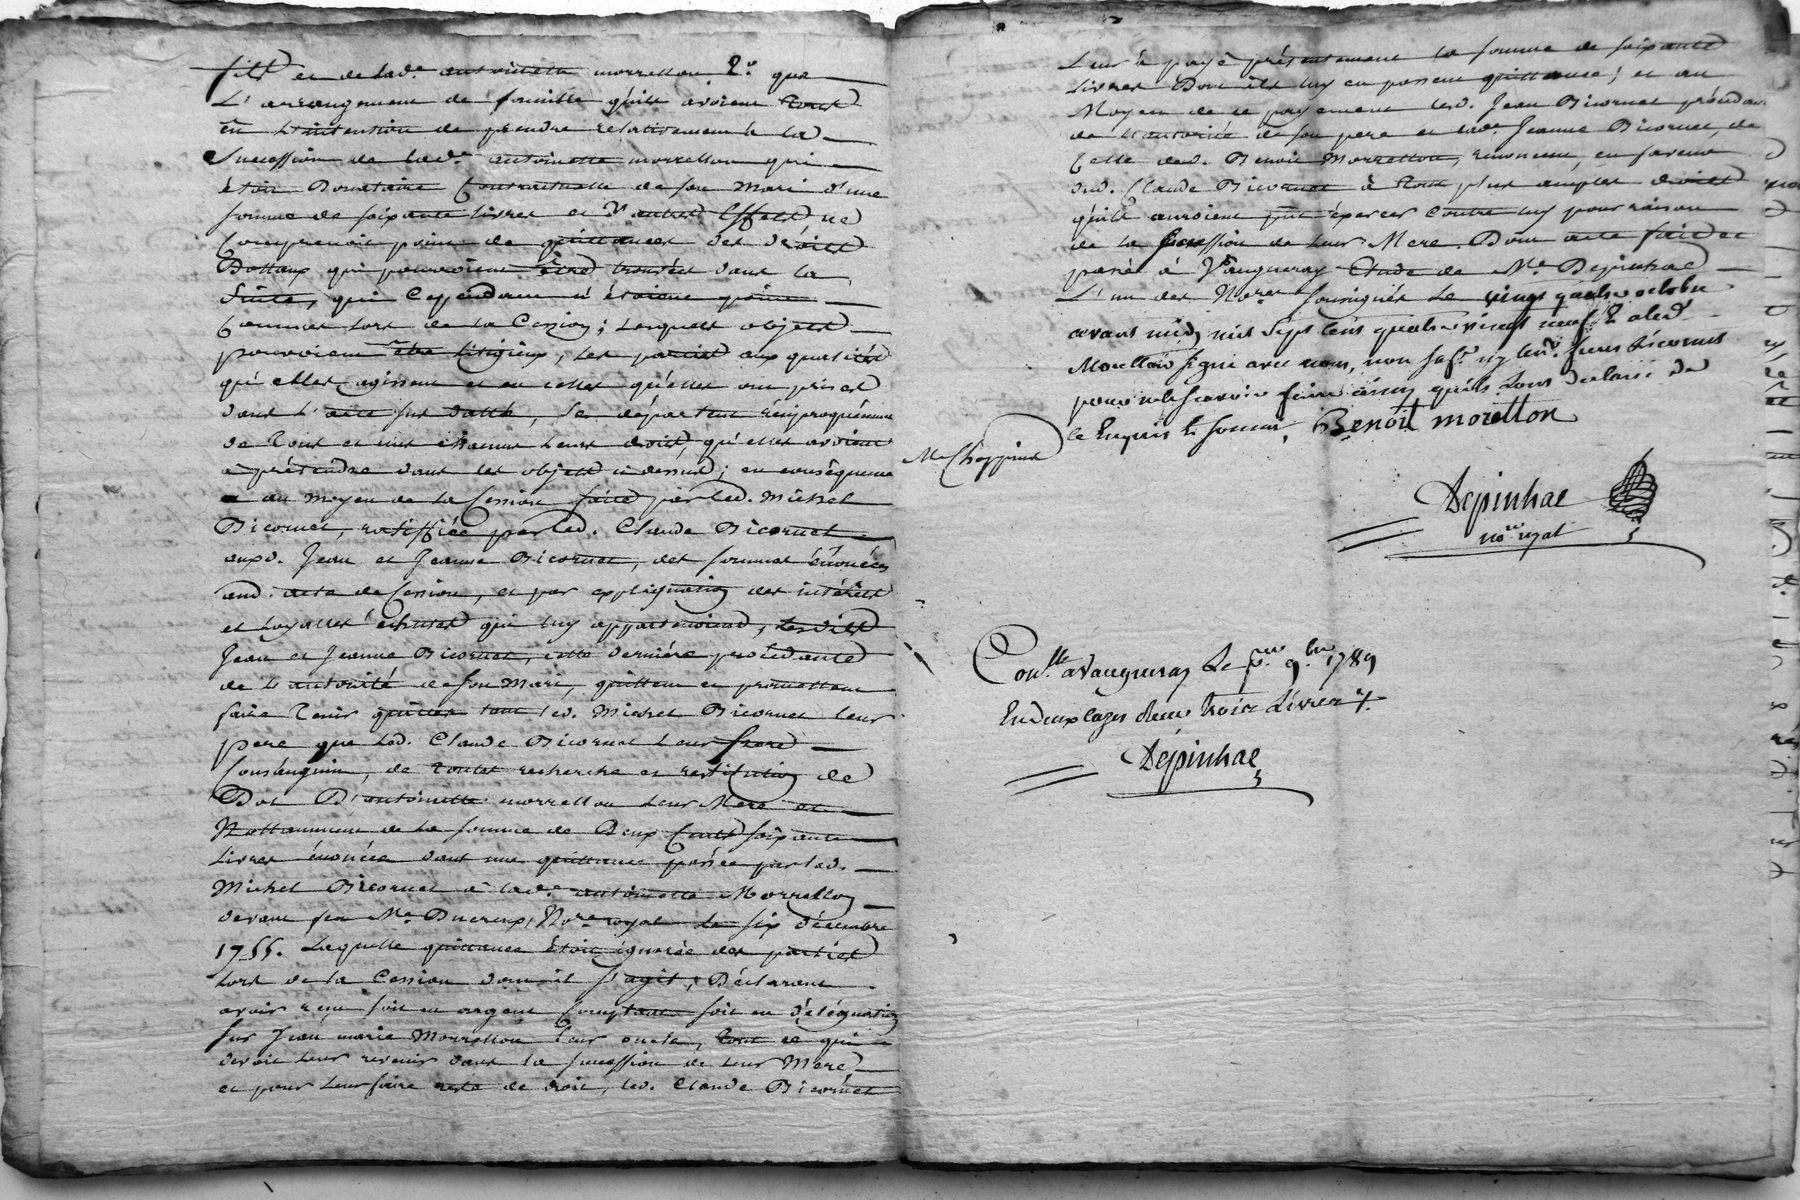 fils et de lad.e antoinette morrellon. 2.o que
L'arrangement de famille qu'ils avoient tous
en L'intention de prendre relativement a la
Succession de lad.e antoinette morrellon qui
étoit Donataire Contractuelle de son Mari d'une
somme de soixante livres et d'autres Effets ne
Comprenoit point de quittances des droits
Dottaux qui pourroient être trouvées dans la
Suite, qui Cependant n'étoient point
Connues lors de la Cession; lesquels objets
pouvoient être litigieux, les parties aux qualités
qu'elles agissent et en celles qu'elles ont prises
dans l'acte sus datté, se départent réciproquement
de tous et uns chacuns leurs droits, qu'elles avoient
a prétendre dans les objets ci dessus; en conséquence
au moyen de la Cession faite par led. Michel
Bicornet, ratiffiée par led. Claude Bicornet
auxd. Jean et Jeanne Bicornet, des sommes énoncées
aud. acte de Cession, et par explication des intérêts
et Loyalles échutes qui luy appartenoient, lesdits
Jean et Jeanne Bicornet, cette dernière procédante
de L'autorité de son Mari, quittent et promettent
faire tenir quittes tant led. Michel Bicornet leur
pere que led. Claude Bicornet Leur frere
Consanguin, de toutes recherche et restitution de
Dot D'antoinette morrellon Leur Mere et
Nottamment de la somme de Deux Cents soixante
livres énoncée dans une quittance passée par led.
Michel Bicornet a lad.e antoinette Morrellon
devant feu M.e Ducreux, No.re royal le six décembre
1755. Laquelle quittance étoit ignorée des parties
lors de la Cession dont il s'agit, Déclarant
avoir reçu soit en argent Comptant soit en délégation
sur Jean marie Morrellon leur oncle, tout ce qui
devoit leur revenir dans la succession de leur Mere,
et pour leur faire reste de droit, led. Claude Bicornet
Leur à payé présentement la somme de soixante
livres Dont ils luy en passent quittance; et au
Moyen de ce payement led. Jean Bicornet procédant
de L'autorité de son pere et lad.e Jeanne Bicornet, de
Celle dud. Benoit Morrellon, renoncent, en faveur
dud. Claude Bicornet à tous plus amples droits
qu'ils auroient pût éxercer Contre luy pour raison
de la succession de leur Mere. Dont acte fait et
passé à Vaugneray Etude de M.e Depinhac
L'un des No.res soussignés Le vingt quatre octobre
avant midy mil Sept Cent quatre vingt neuf & aled.
Morellon signé avec nous, non les Bicornet
pour ne le scavoir faire ainsy qu'ils l'ont declaré de
ce Enquis & sommés, Benoît morellon
Depinhac
no.re royal
Con.lle a Vaugneray Le p.er 9.bre 1789
En deux cazes Reçu trois Livres
Depinhac